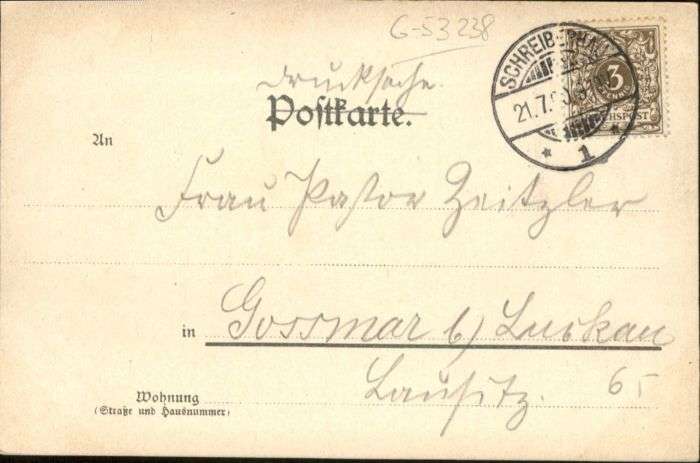 G-53238
Drucksache.
Postkarte.
SCHREIBERHAU
21.7.
1
3
REICHSPOST
An
Frau Pastor Zeitzler
in Gossmar b/ Luckau
Lausitz.
65
Wohnung
(Straße und Hausnummer)